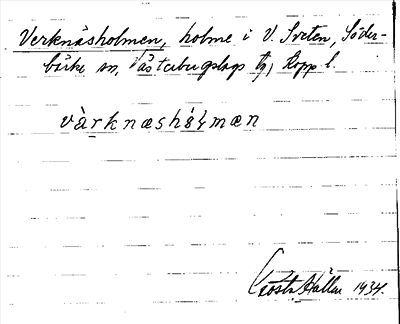 Verknäsholmen, holme i V. Sveten, Söder-
bärke sn, Västerbergslags tg, Kopp l.
värknæshålmæn
Gösta Hallen 1934.